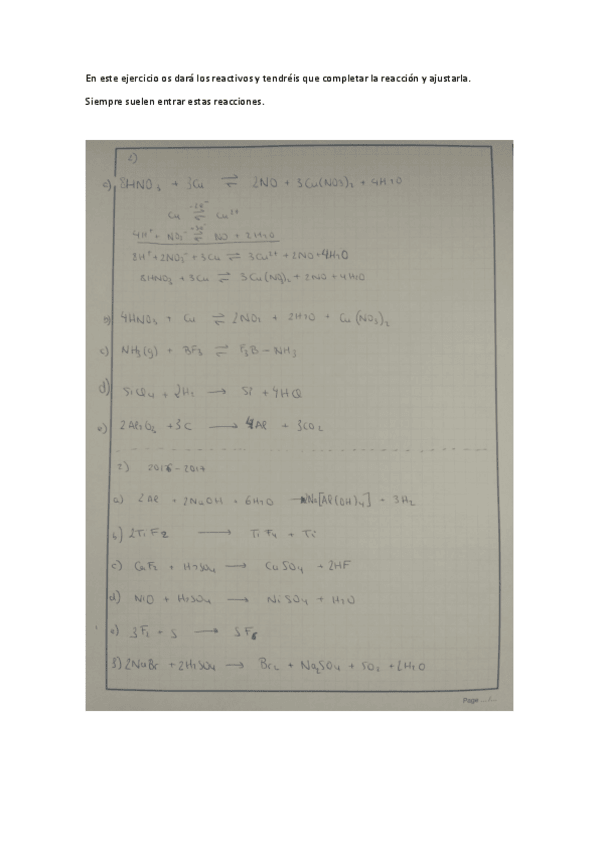 En este ejercicio os dará los reactivos y tendréis que completar la reacción y ajustarla.
Siempre suelen entrar estas reacciones.
a) 8HNO3 + 3Cu ⇌ 2NO + 3Cu(NO3)2 + 4H2O
Cu ⇌ Cu2+
4H+ + NO3- ⇌ NO + 2H2O
8H+ + 2NO3- + 3Cu ⇌ 3Cu2+ + 2NO + 4H2O
8HNO3 + 3Cu ⇌ 3Cu(NO3)2 + 2NO + 4H2O
b) 4HNO3 + Cu ⇌ 2NO2 + 2H2O + Cu(NO3)2
c) NH3(g) + BF3 ⇌ F3B-NH3
d) SiCl4 + 2H2 → Si + 4HCl
e) 2Al2O3 + 3C → 4Al + 3CO2
2) 2016-2017
a) 2Al + 2NaOH + 6H2O → 2Na[Al(OH)4] + 3H2
b) 2TiF2 → TiF4 + Ti
c) CaF2 + H2SO4 → CaSO4 + 2HF
d) NiO + H2SO4 → NiSO4 + H2O
e) 3F2 + S → SF6
3) 2NaBr + 2H2SO4 → Br2 + Na2SO4 + SO2 + 2H2O
Page